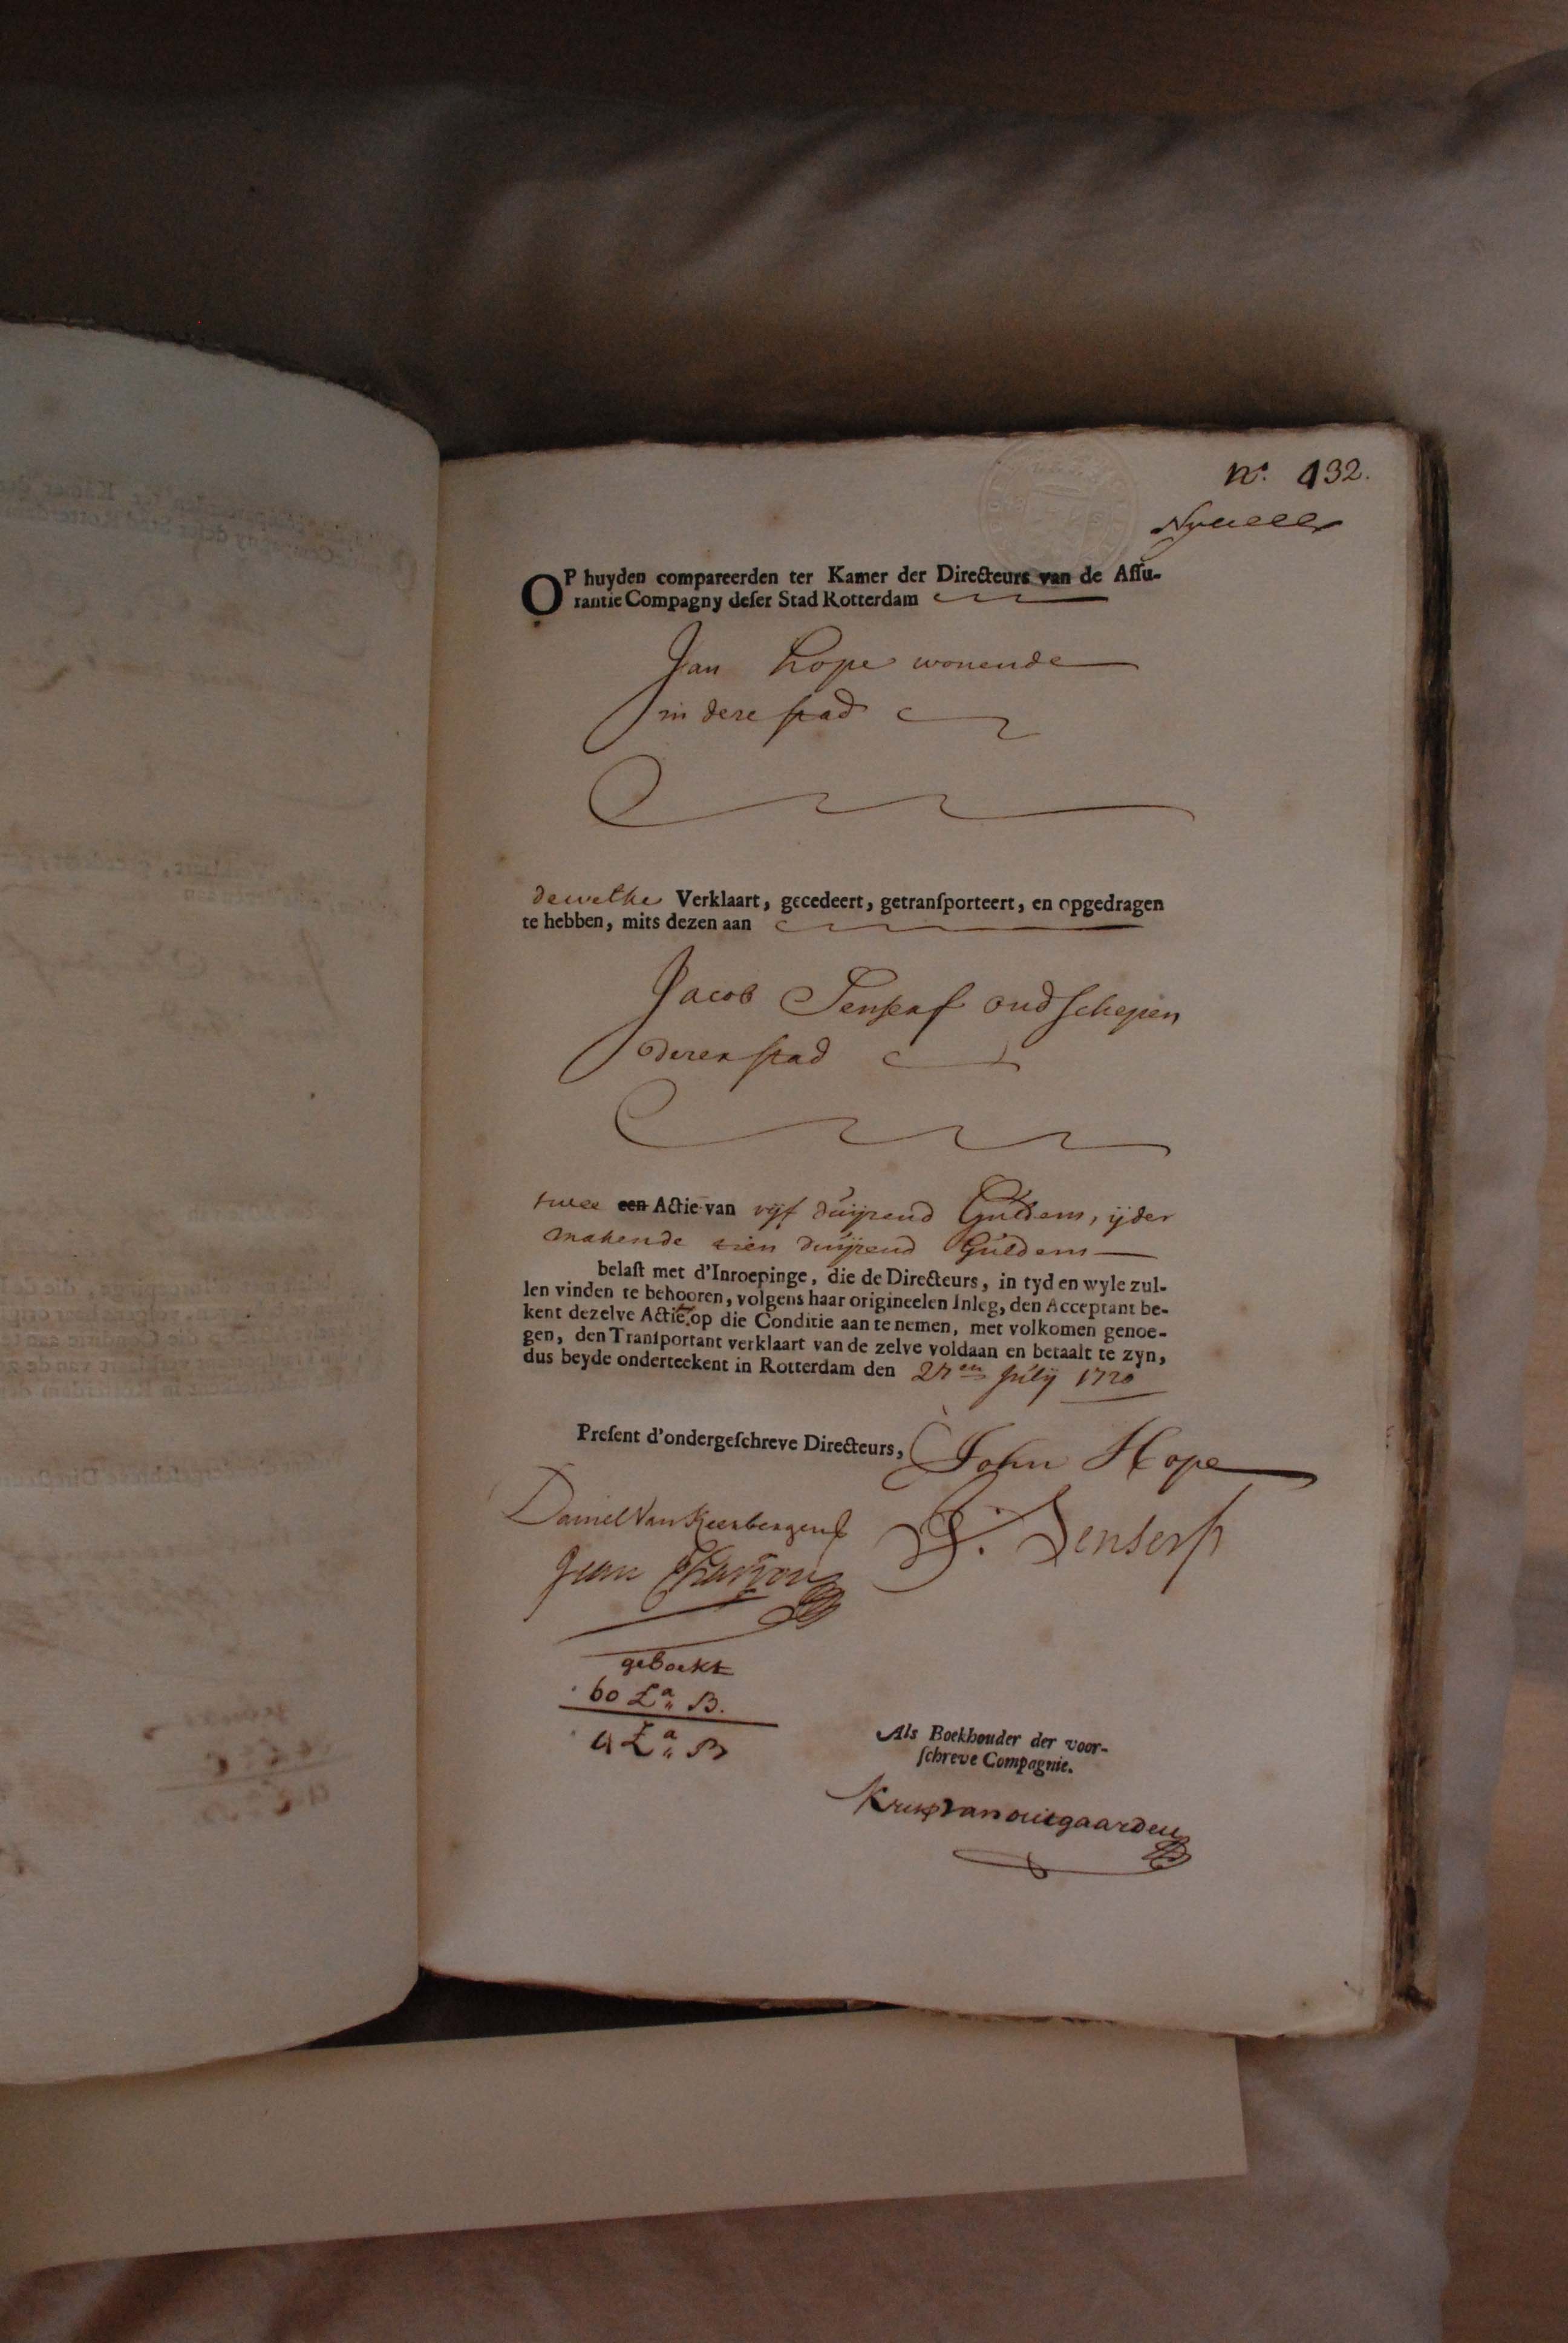 n.º 132.
OP huyden compareerden ter Kamer der Directeurs van de Aſſu-
rantie Compagny deſer Stad Rotterdam
Jan Hope wonende
in deze stad
dewelke Verklaart, gecedeert, getranſporteert, en opgedragen
te hebben, mits dezen aan
Jacob Senserf oud schepen
dezer stad
twee een Actie van vijf duijzend Guldens, ijder
makende tien duijzend Guldens
belaſt met d'Inroepinge, die de Directeurs, in tyd en wyle zul-
len vinden te behooren, volgens haar origineelen Inleg, den Acceptant be-
kent dezelve Actie op die Conditie aan te nemen, met volkomen genoe-
gen, den Tranſportant verklaart van de zelve voldaan en betaalt te zyn,
dus beyde onderteekent in Rotterdam den 27en Julij 1720
Preſent d'ondergeſchreve Directeurs, John Hope
Daniel Van Keerbergen
J. Senserf
Jean
geboekt
60 La B.
La B
Als Boekhouder der voor-
ſchreve Compagnie.